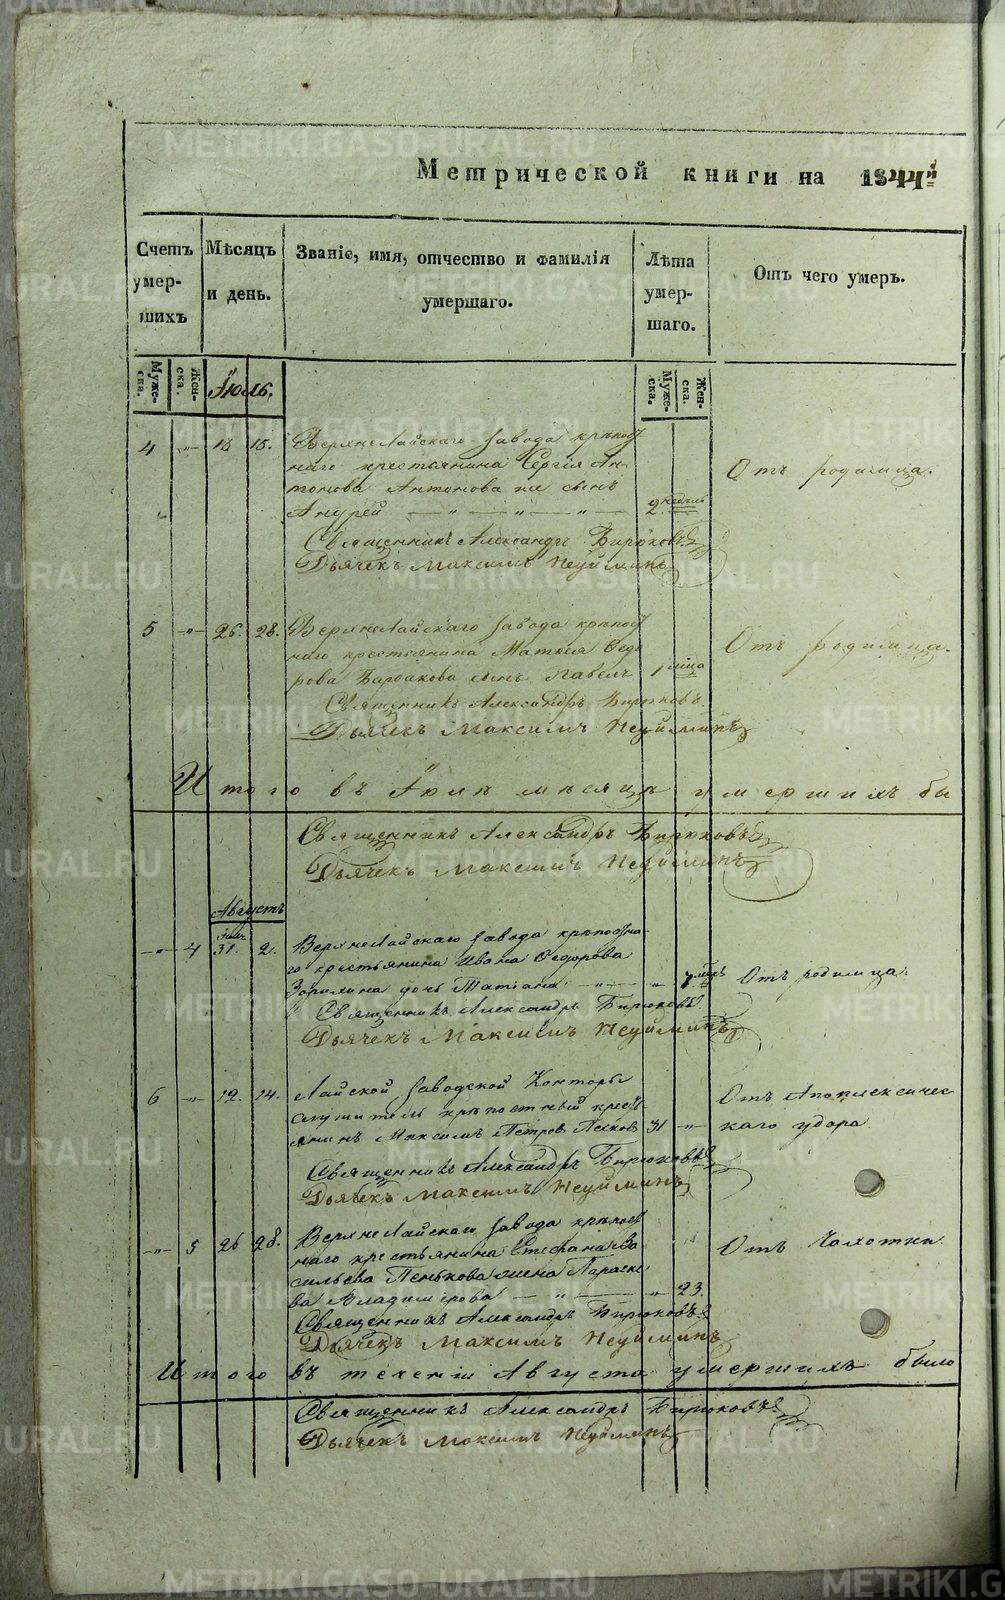 Метрической книги на 1844й
Счетъ умер-шихъ
Мѣсяцъ и день.
Званіе, имя, отчество и фамилія умершаго.
Лѣта умер-шаго.
Отъ чего умеръ.
Муже-ска.
Жен-ска.
Іюль.
Муже-ска.
Жен-ска.
4 -"- 13 15. ВерхнеЛайскаго завода крѣпост
наго крестьянина Сергія Ан-
тонова Антонова же сынъ
Андрей — " — " — " — 2 недѣль
Отъ родимца.
Священникъ Александръ Бирюковъ
Дьячекъ Максимъ Неуйминъ
5 -"- 26. 28. ВерхнеЛайскаго завода крѣпост
наго крестьянина Матвея Ѳедо
рова сынъ Павелъ 1 мѣца
Отъ родимца.
Священникъ Александръ Бирюковъ
Дьячекъ Максимъ Неуйминъ
Итого въ Іюлѣ мѣсяцѣ умершихъ бы
Священникъ Александръ Бирюковъ
Дьячекъ Максимъ Неуйминъ
Августъ
-"- 4 Іюля 31. 2. ВерхнеЛайскаго завода крѣпостна-
го крестьянина Ивана Ѳедорова
дочь Татіана — " — " 7 мцъ
Отъ родимца.
Священникъ Александръ Бирюковъ
Дьячекъ Максимъ Неуйминъ
6 -"- 12. 14. Лайской Заводской Конторы
служитель крѣпостный крест
янинъ Максимъ Петровъ 31 -"-
Отъ Апоплексичес
каго удара.
Священникъ Александръ Бирюковъ
Дьячекъ Максимъ Неуйминъ
-"- 5 26 28. ВерхнеЛайскаго завода крѣпост
наго крестьянина Стефана Ва
сильева Пенькова жена Параске
ва Владимірова — " — " 23.
Отъ Чахотки
Священникъ Александръ Бирюковъ
Дьячекъ Максимъ Неуйминъ
Итого въ теченіи Августа умершихъ было
Священникъ Александръ Бирюковъ
Дьячекъ Максимъ Неуйминъ
METRIKI.GASO-URAL.RU